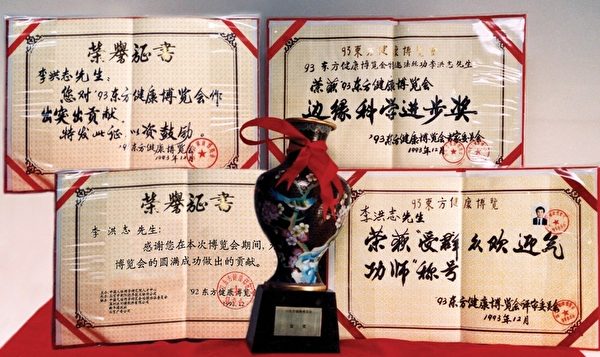 荣誉证书
李洪志先生:
您对'93东方健康博览会作
出突出贡献,
特发此证,以资鼓励。
'93东方健康博览会
1993年12月
93東方健康博覽會
李洪志先生:
荣获'93东方健康博览会
边缘科学进步奖
'93东方健康博览会评审委员会
1993年12月
荣誉证书
李洪志先生:
感谢您在本次博览会期间,
博览会的圆满成功做出的贡献。
'92东方健康博览会
93東方健康博覽
李洪志先生
荣获"受群众欢迎气
功师"称号
'93东方健康博览会评审委员会
1993年12月